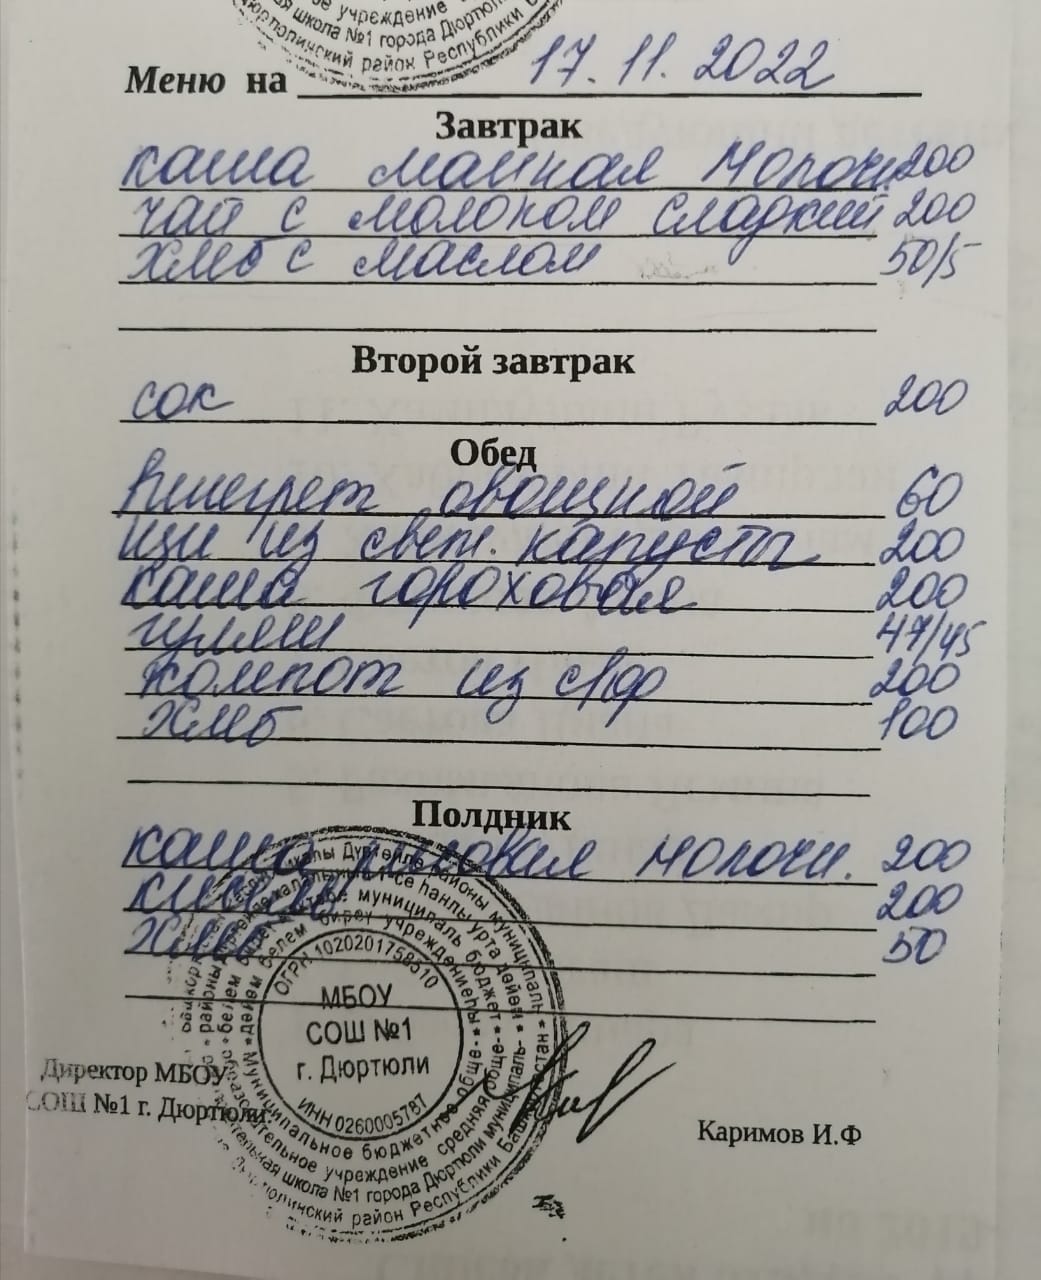 учреждение
школа №1 города Дюртюли
Дюртюлинский район Республики
Меню на 17.11.2022
Завтрак
каша манная молочн. 200
чай с молоком сладкий 200
хлеб с маслом 50/5
Второй завтрак
сок 200
Обед
Винегрет овощной 60
щи из свеж. капусты 200
каша гороховая 200
гуляш 47/45
компот из с/ф 200
хлеб 100
Полдник
каша рисовая молочн. 200
200
хлеб 50
ОГРН 1020201758510
МБОУ
СОШ №1
г. Дюртюли
ИНН 0260005787
Муниципальное бюджетное обще-
образовательное учреждение средняя обще-
образовательная школа №1 города Дюртюли муниципаль-
Дюртюлинский район Республики Башкортостан
Директор МБОУ
СОШ №1 г. Дюртюли:
Каримов И.Ф